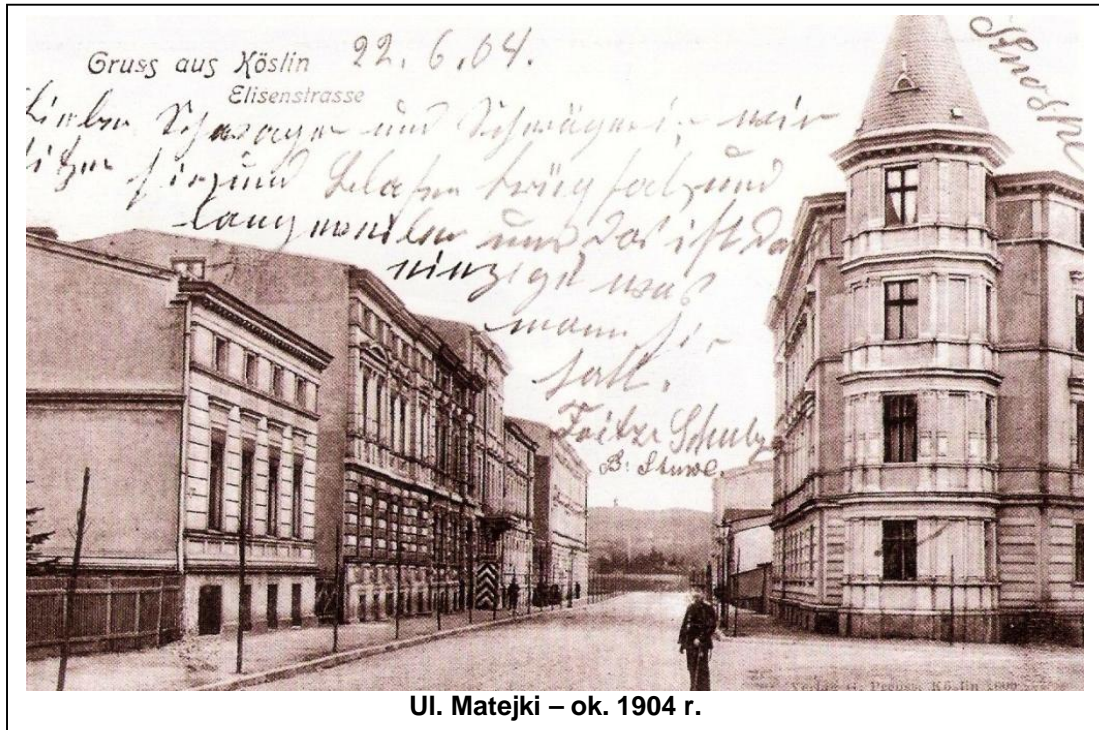 Gruss aus Köslin 22.6.04.
Elisenstrasse
Lieber Schwager und Schwägerin wir
sitzen hir und blasen trübsal und
langweilen und das ist das
einzige was
mann hir
hatt.
Fritze Schulze
B.
Verlag G. Preuss, Köslin
Ul. Matejki – ok. 1904 r.